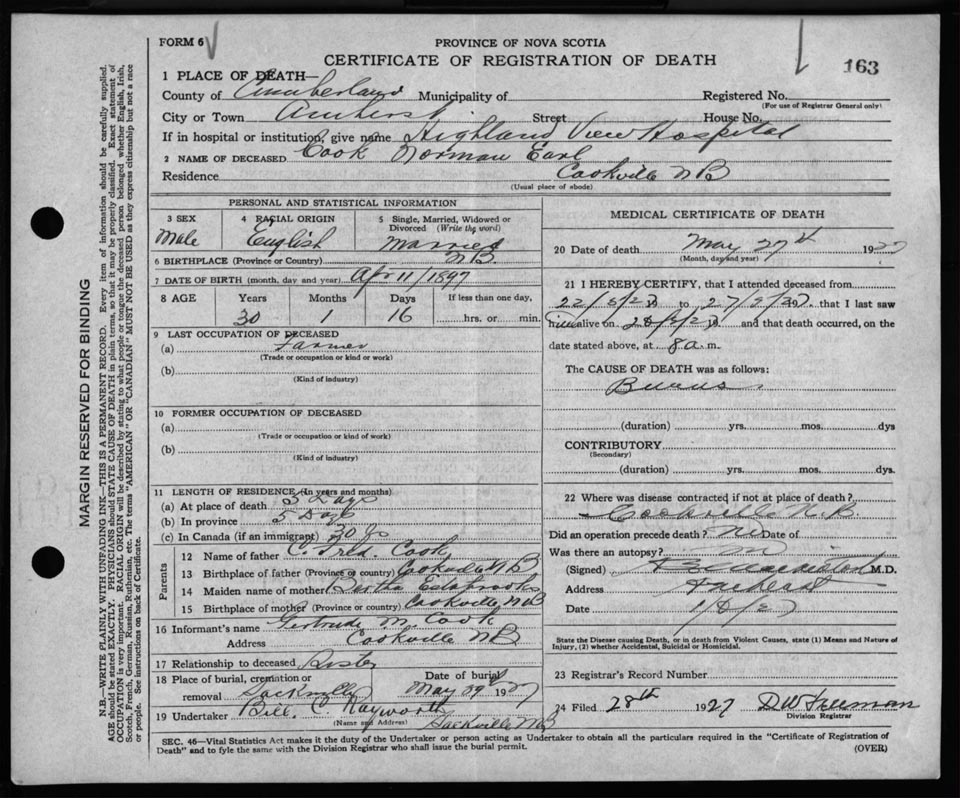 FORM 6
PROVINCE OF NOVA SCOTIA
CERTIFICATE OF REGISTRATION OF DEATH
163
1 PLACE OF DEATH—
County of Cumberland Municipality of Registered No.
(For use of Registrar General only)
City or Town Amherst Street House No.
If in hospital or institution, give name Highland View Hospital
2 NAME OF DECEASED Cook Norman Earl
Residence Cookville NB
(Usual place of abode)
PERSONAL AND STATISTICAL INFORMATION
3 SEX Male
4 RACIAL ORIGIN English
5 Single, Married, Widowed or Divorced (Write the word) Married
6 BIRTHPLACE (Province or Country) N.B.
7 DATE OF BIRTH (month, day and year) Apr 11/1897
8 AGE Years Months Days If less than one day,
30 1 16 hrs. or min.
9 LAST OCCUPATION OF DECEASED
(a) Farmer
(Trade or occupation or kind or work)
(b)
(Kind of industry)
10 FORMER OCCUPATION OF DECEASED
(a)
(Trade or occupation or kind of work)
(b)
(Kind of industry)
11 LENGTH OF RESIDENCE (In years and months)
(a) At place of death 5 Days
(b) In province 5 Days
(c) In Canada (if an immigrant) 30
Parents
12 Name of father Cook
13 Birthplace of father (Province or country) Cookville NB
14 Maiden name of mother Bertha Estabrooks
15 Birthplace of mother (Province or country) Cookville NB
16 Informant's name Gertrude M. Cook
Address Cookville NB
17 Relationship to deceased Sister
18 Place of burial, cremation or removal Sackville
Date of burial May 29th 1927
19 Undertaker Bill. C. Hayworth
(Name and Address) Sackville NB
MEDICAL CERTIFICATE OF DEATH
20 Date of death May 27th 1927
(Month, day and year)
21 I HEREBY CERTIFY, that I attended deceased from
22/5/27 to 27/5/27 that I last saw
him alive on and that death occurred, on the
date stated above, at 8 a.m.
The CAUSE OF DEATH was as follows:
Burns
(duration) yrs. mos. dys
CONTRIBUTORY
(Secondary)
(duration) yrs. mos. dys.
22 Where was disease contracted if not at place of death?
Cookville N.B.
Did an operation precede death? No Date of
Was there an autopsy?
(Signed) M.D.
Address Amherst
Date
State the Disease causing Death, or in death from Violent Causes, state (1) Means and Nature of
Injury, (2) whether Accidental, Suicidal or Homicidal.
23 Registrar's Record Number
24 Filed 28th 1927 D W Freeman
Division Registrar
SEC. 46—Vital Statistics Act makes it the duty of the Undertaker or person acting as Undertaker to obtain all the particulars required in the "Certificate of Registration of
Death" and to fyle the same with the Division Registrar who shall issue the burial permit.
(OVER)
MARGIN RESERVED FOR BINDING
N.B.—WRITE PLAINLY WITH UNFADING INK—THIS IS A PERMANENT RECORD. Every item of information should be carefully supplied.
AGE should be stated EXACTLY. PHYSICIANS should STATE CAUSE OF DEATH in plain terms, so that it may be properly classified. Exact statement of
OCCUPATION is very important. RACIAL ORIGIN will be described by stating to what people or tongue the deceased person belonged whether English, Irish,
Scotch, French, German, Russian, Ruthenian, etc. The terms "AMERICAN" OR "CANADIAN" MUST NOT BE USED as they express citizenship but not a race
or people. See instructions on back of Certificate.